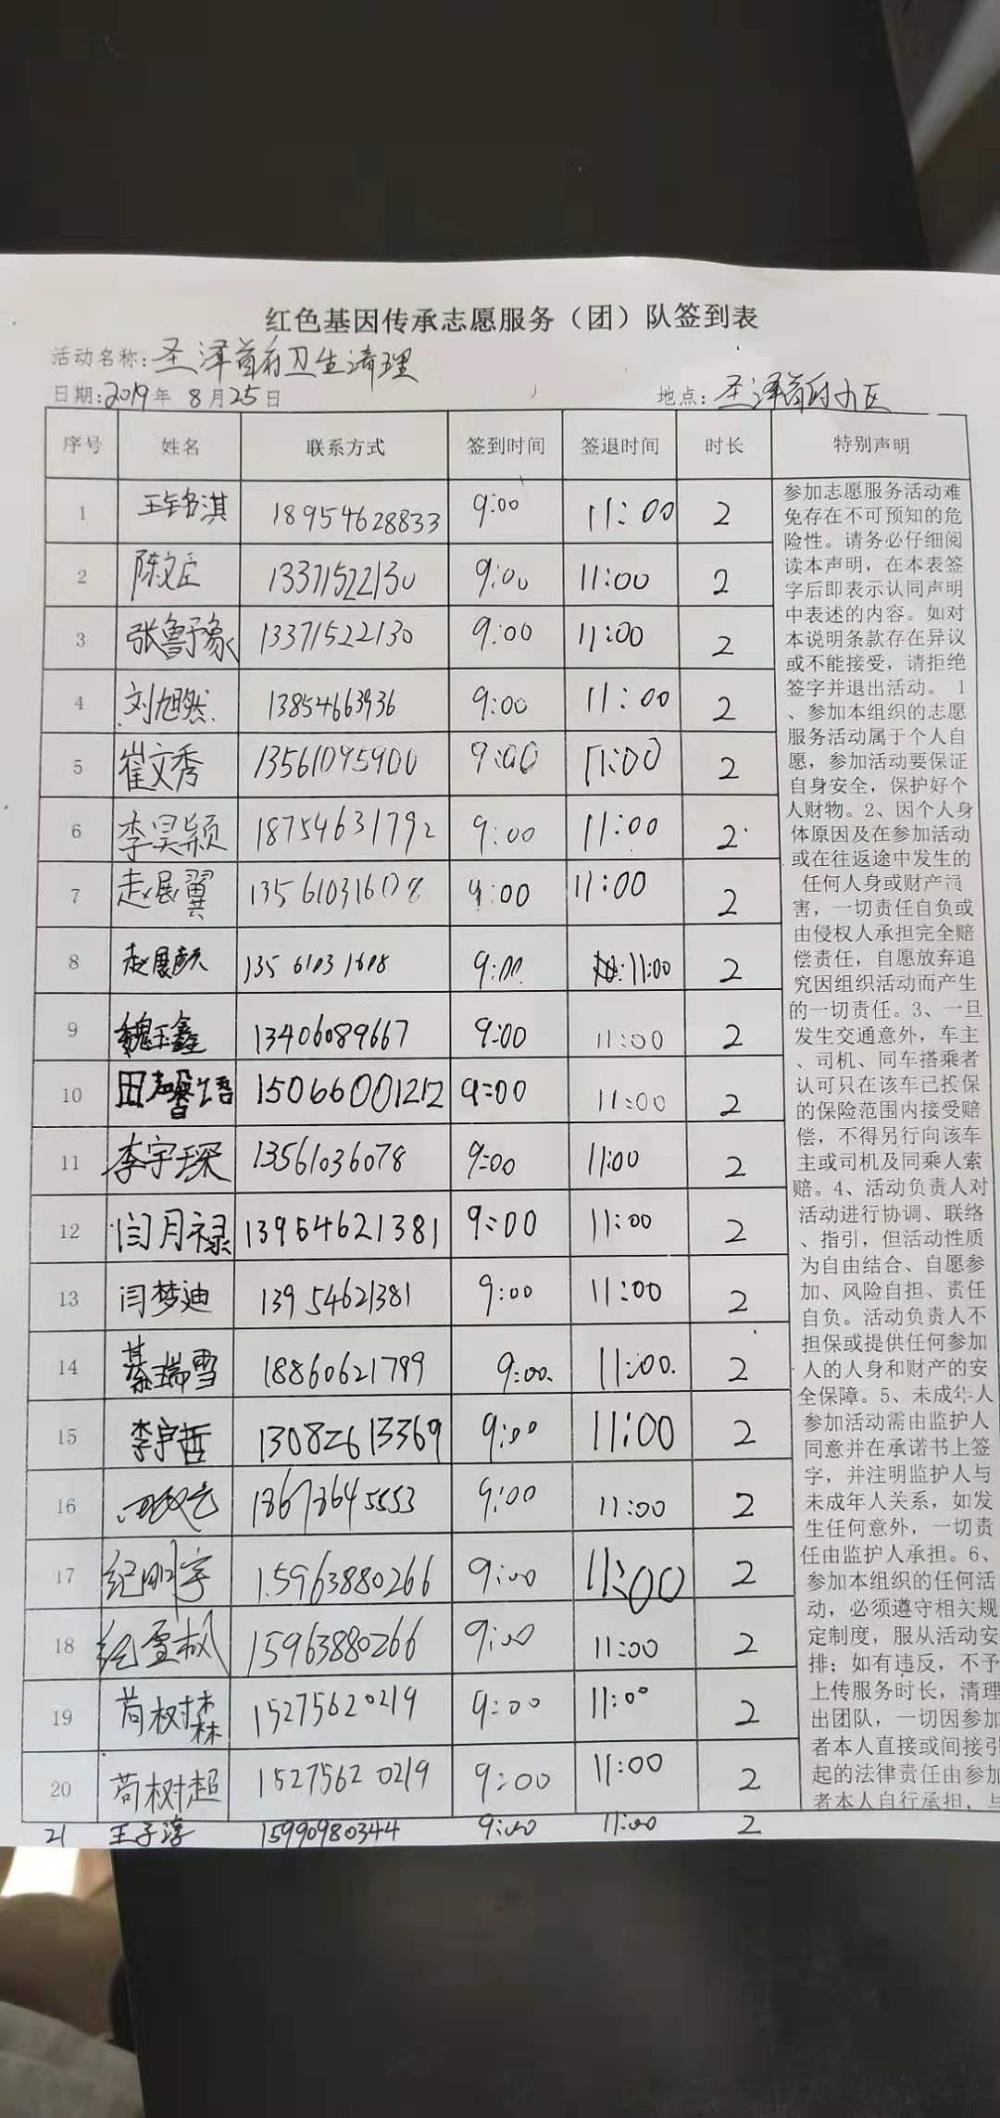 红色基因传承志愿服务（团）队签到表
活动名称：圣泽首府卫生清理
日期：2019年 8月25日 地点：圣泽首府小区
序号 姓名 联系方式 签到时间 签退时间 时长 特别声明
1 王钰淇 18954628833 9:00 11:00 2
2 陈文丘 13371522130 9:00 11:00 2
3 张鲁豫 13371522130 9:00 11:00 2
4 刘旭然 13854663936 9:00 11:00 2
5 崔文秀 13561095900 9:00 11:00 2
6 李昊颖 18754631792 9:00 11:00 2
7 赵展翼 13561031608 9:00 11:00 2
8 赵展 13561031608 9:00 11:00 2
9 魏玉鑫 13406089667 9:00 11:00 2
10 田 15066001212 9:00 11:00 2
11 李宇琛 13561036078 9:00 11:00 2
12 闫月禄 13954621381 9:00 11:00 2
13 闫梦迪 13954621381 9:00 11:00 2
14 綦瑞雪 18860621799 9:00 11:00 2
15 李宇哲 13082613369 9:00 11:00 2
16 18678645553 9:00 11:00 2
17 纪明宇 15963880266 9:00 11:00 2
18 纪雪枫 15963880266 9:00 11:00 2
19 苟树森 15275620219 9:00 11:00 2
20 苟树超 15275620219 9:00 11:00 2
21 王子淳 15990980344 9:00 11:00 2
参加志愿服务活动难
免存在不可预知的危
险性。请务必仔细阅
读本声明，在本表签
字后即表示认同声明
中表述的内容。如对
本说明条款存在异议
或不能接受，请拒绝
签字并退出活动。 1
、参加本组织的志愿
服务活动属于个人自
愿，参加活动要保证
自身安全，保护好个
人财物。2、因个人身
体原因及在参加活动
或在往返途中发生的
任何人身或财产损
害，一切责任自负或
由侵权人承担完全赔
偿责任，自愿放弃追
究因组织活动而产生
的一切责任。3、一旦
发生交通意外，车主
、司机、同车搭乘者
认可只在该车已投保
的保险范围内接受赔
偿，不得另行向该车
主或司机及同乘人索
赔。4、活动负责人对
活动进行协调、联络
、指引，但活动性质
为自由结合、自愿参
加、风险自担、责任
自负。活动负责人不
担保或提供任何参加
人的人身和财产的安
全保障。5、未成年人
参加活动需由监护人
同意并在承诺书上签
字，并注明监护人与
未成年人关系，如发
生任何意外，一切责
任由监护人承担。6、
参加本组织的任何活
动，必须遵守相关规
定制度，服从活动安
排；如有违反，不予
上传服务时长，清理
出团队，一切因参加
者本人直接或间接引
起的法律责任由参加
者本人自行承担，与